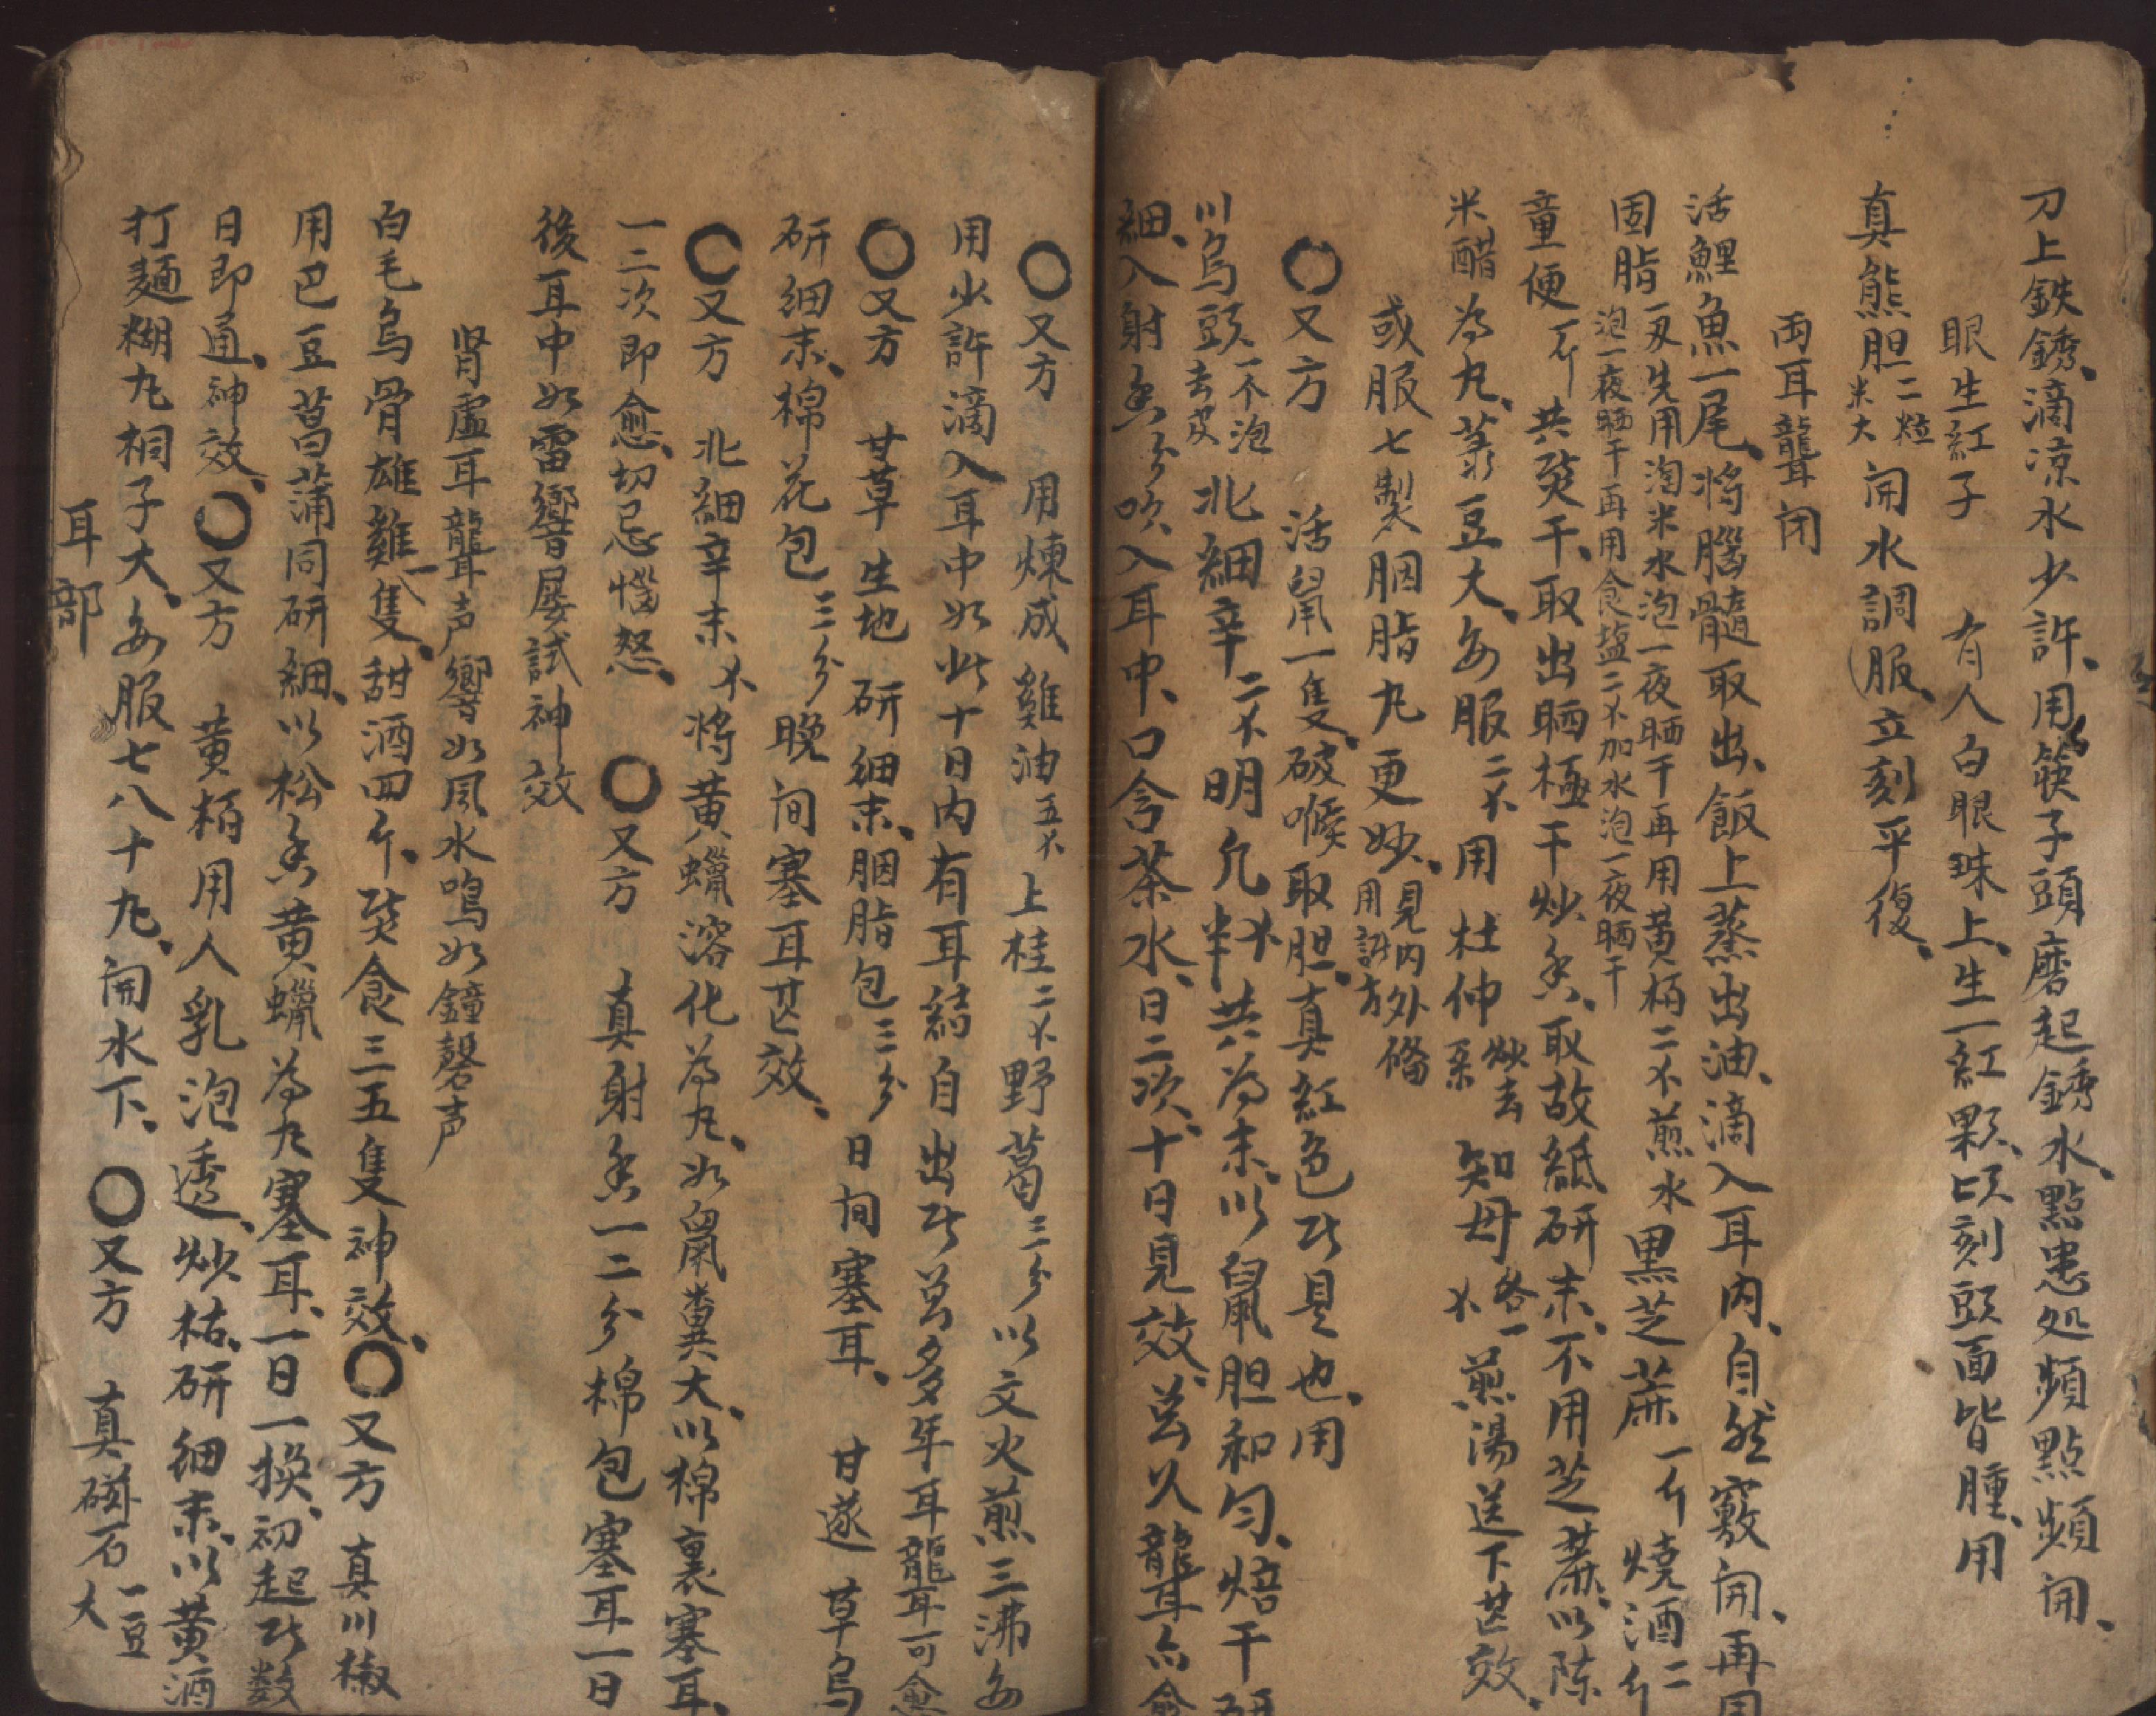 刀上鉄銹、滴凉水少許、用筷子頭磨起銹水、點患処頻點頻開、
眼生紅子　有人白眼珠上、生一紅顆、頃刻頭面皆腫、用
真熊胆二粒米大開水調服、立刻平復、
両耳聾闭
活鯉魚一尾、将腦髓取出、飯上蒸出油、滴入耳内、自然竅開、再用
固脂一刄先用淘米水泡一夜晒干再用黄柏二不煎水
泡一夜晒干再用食塩二不加水泡一夜晒干
黒芝蔴一斤燒酒二斤
童便一斤共煑干、取出晒極干炒香、取故紙研末、不用芝蔴、以陈
米醋為丸、菉豆大、每服二不用杜仲炒去系知母各一不煎湯送下甚效、
或服七製胭脂丸更妙、見内外備用諸方
〇又方　活鼠一隻、破喉取胆、真紅色者是也、用
川烏頭一个泡去皮北細辛二不明凡半不共為末、以鼠胆和匀、焙干研
細、入射香分吹入耳中、口含茶水、日二次、十日見效、並久聾亦愈
〇又方　用煉成雞油五不上桂二不野葛三分以文火煎三沸每
用少許滴入耳中如此十日内有耳結自出者並多年耳聾可愈
〇又方　甘草生地研細末、胭脂包三分日间塞耳、甘遂草烏
研细末、棉花包三分晚间塞耳甚效、
〇又方　北細辛末不将黄蠟溶化為丸、如鼠糞大、以棉裹塞耳、
一二次即愈、切忌惱怒、　〇又方　真射香一二分棉包塞耳一日
後耳中如雷響屡試神效
肾虚耳聾声響如風水鳴如鐘磬声
白毛烏骨雄雞一隻、甜酒四斤、煑食三五隻神效、〇又方　真川椒
用巴豆菖蒲同研細、以松香黄蠟為丸塞耳、一日一換、初起者数
日即通、神效、〇又方　黄栢用人乳泡透、炒枯、研细末、以黄酒
打麺糊丸桐子大、每服七八十丸、開水下、〇又方　真磁石一豆大
耳部